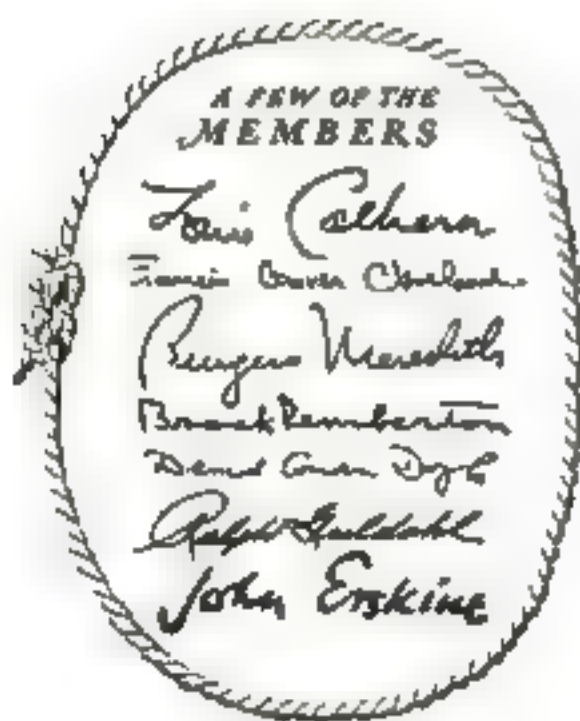 A FEW OF THE
MEMBERS
Louis Calhern
Francis
Burgess Meredith
Brock Pemberton
Denis Conan Doyle
Ralph Guldahl
John Erskine